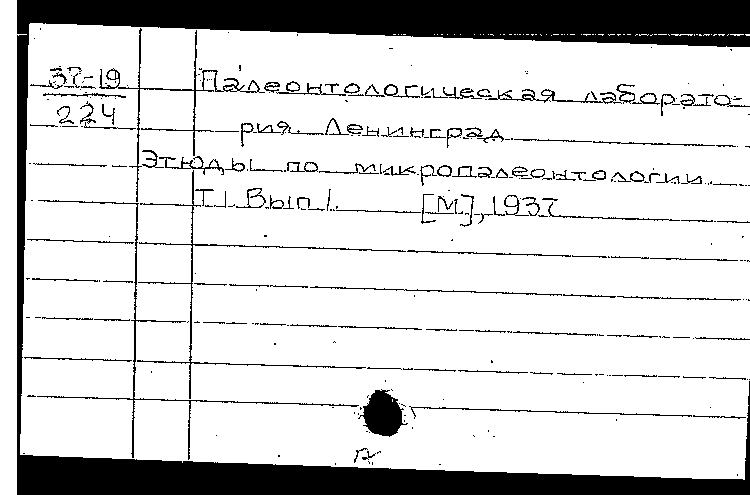 37-19
224
Палеонтологическая лаборато-
рия. Ленинград
Этюды по микропалеонтологии.
Т.I. Вып I. [М], 1937